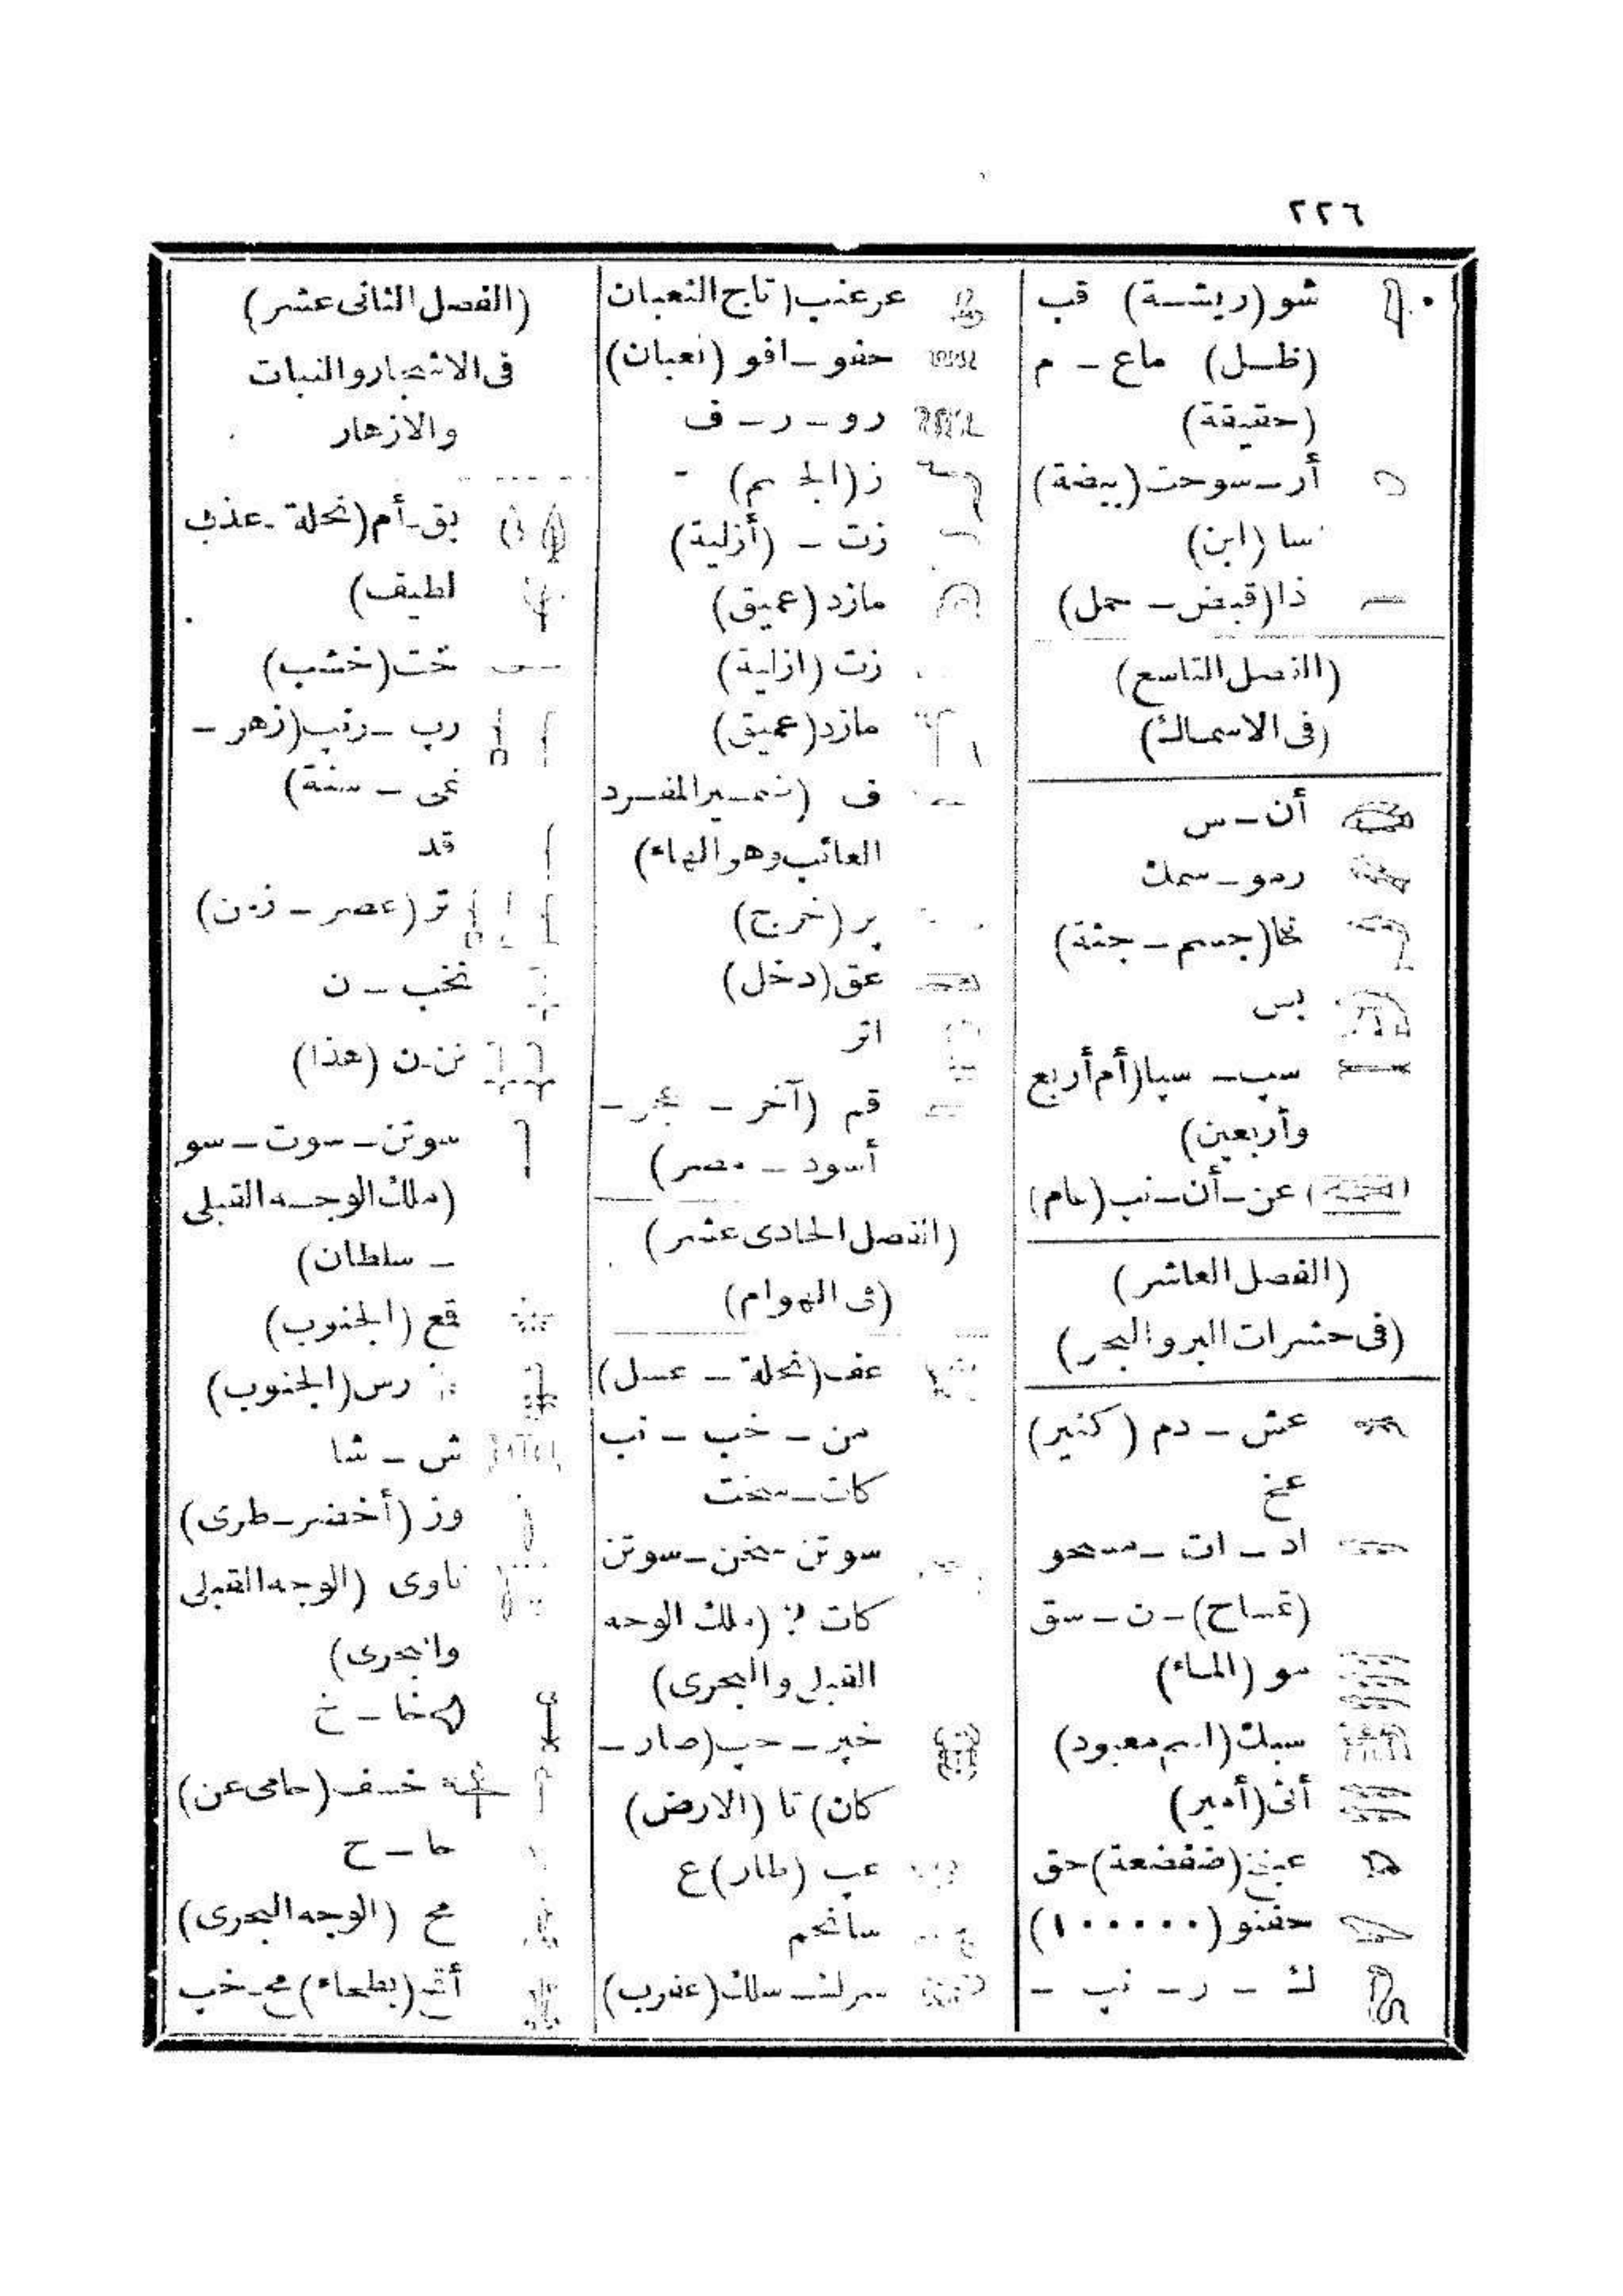 ٢٢٦
شو (ريشة) قب
(ظل) ماع - م
(حقيقة)
أر - سوحت (بيضة)
سا (ابن)
ذا (قبض - حمل)
(الفصل التاسع)
(فى الاسماك)
أن - س
رمو - سمك
خا (جسم - جثة)
بس
سپ - سپا (أم أربع
وأربعين)
عن - أن - نب (عام)
(الفصل العاشر)
(فى حشرات البر والبحر)
عش - دم (كثير)
عنخ
اد - ات - مسحو
(تمساح) - ن - سق
سو (الماء)
سبك (اسم معبود)
أثى (أمير)
(ضفضعة) حق
حفنو (١٠٠٠٠٠)
ك - ر - نپ -
عرعنب (تاج الثعبان
حفو - افو (ثعبان)
رو - ر - ف
ز (الجسم) -
زت - (أزلية)
مازد (عميق)
زت (ازلية)
مازد (عميق)
ف (ضمير المفرد
الغائب وهو الهاء)
پر (خرج)
عق (دخل)
اتر
قم (آخر - -
أسود - مصر)
(الفصل الحادى عشر)
(فى الهوام)
عف (نحلة - عسل)
من - خب - نب
كات - سخت
سوتن - سخن - سوتن
كات ؟ (ملك الوجه
القبلى والبحرى)
خپر - حپ (صار -
كان) تا (الارض)
عپ (طار) ع
سانحم
سرك - سلك (عقرب)
(الفصل الثانى عشر)
فى الاشجار والنبات
والازهار
بق - أم (نخلة - عذب
لطيف)
خت (خشب)
رپ - رنپ (زهر -
نمى - سنة)
قد
تر (عصر - زمن)
نخب - ن
نن - ن (هذا)
سوتن - سوت - سو
(ملك الوجه القبلى
- سلطان)
قع (الجنوب)
رس (الجنوب)
ش - شا
وز (أخضر - طرى)
ناوى (الوجه القبلى
والبحرى)
خا - خ
خسف (حامى عن)
حا - ح
مح (الوجه البحرى)
(بطحاء) مح - خب